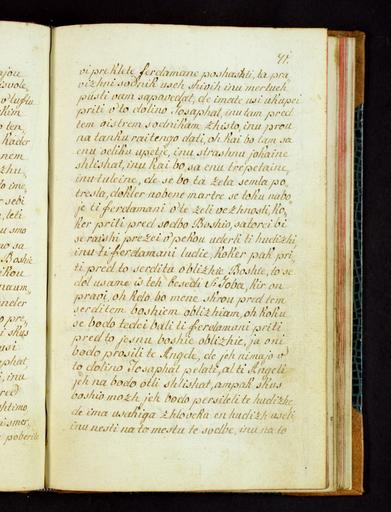 41.
vi preklete ferdamane poshasti, ta pra
vizhni sodnik useh shivih inu mertveh
pusti vam sapovedat, de imate usi ukupei
priti v to dolino Josaphat, inu tam pred
tem oistrem sodnikam zhisto, inu prou
na tanku raitengo dati, oh kai bo tam sa
enu veliku upetje, inu strashnu jokaine
shlishat, inu kai bo sa enu trepetaine,
inu tuleine, de se bo ta zela semla po
tresla, dokler nobene martre se toku nabo
je ti ferdamani v te zeli vezhnosti, ko,
ker priti pred sodbo Boshio, satorei bi
se raishi prezei v pekou uderli ti hudizhi,
inu ti ferdamani ludie, koker pak pri,
ti pred to serdito oblizhie Boshie, to se
dol usame is teh besedi S. Joba, kir on
pravi, oh kdo bo mene skrou pred tem
serditem boshiem oblizhiam, oh koku
se bodo tedei bali ti ferdamani priti
pred to jesnu boshie oblizhie, ja oni
bodo prosili te Angele, de jeh nimajo v
to dolino Josaphat pelati, al ti Angeli
jeh na bodo otli shlishat, ampak skus
boshio mozh jeh bodo persilili te hudizhe,
de ima usakiga zhloveka en hudizh useti,
inu nesti na to mestu te sodbe, inu na to